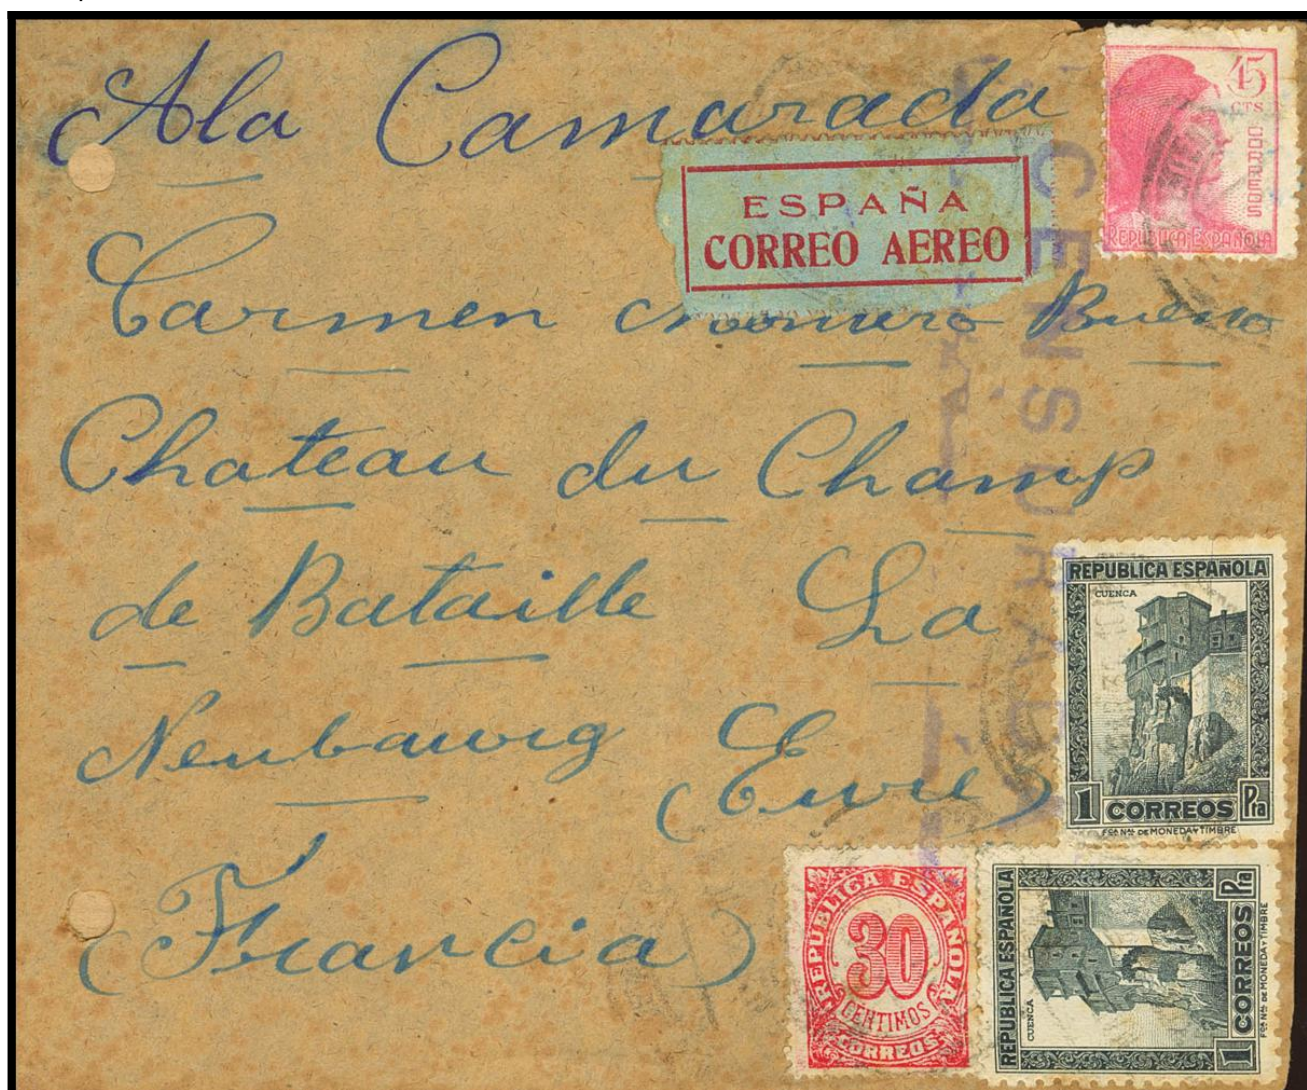 A la Camarada
ESPAÑA
CORREO AEREO
45
CTS
CORREOS
REPUBLICA ESPAÑOLA
CENSURA
Carmen Romero Bueno
Chateau du Champ
de Bataille La
Neubawig (Eure)
(Francia)
REPUBLICA ESPAÑOLA
CUENCA
1 CORREOS Pta
FCA. NAL. DE MONEDA Y TIMBRE
REPUBLICA ESPAÑOLA
30
CENTIMOS
CORREOS
REPUBLICA ESPAÑOLA
CUENCA
1 CORREOS Pta
FCA. NAL. DE MONEDA Y TIMBRE